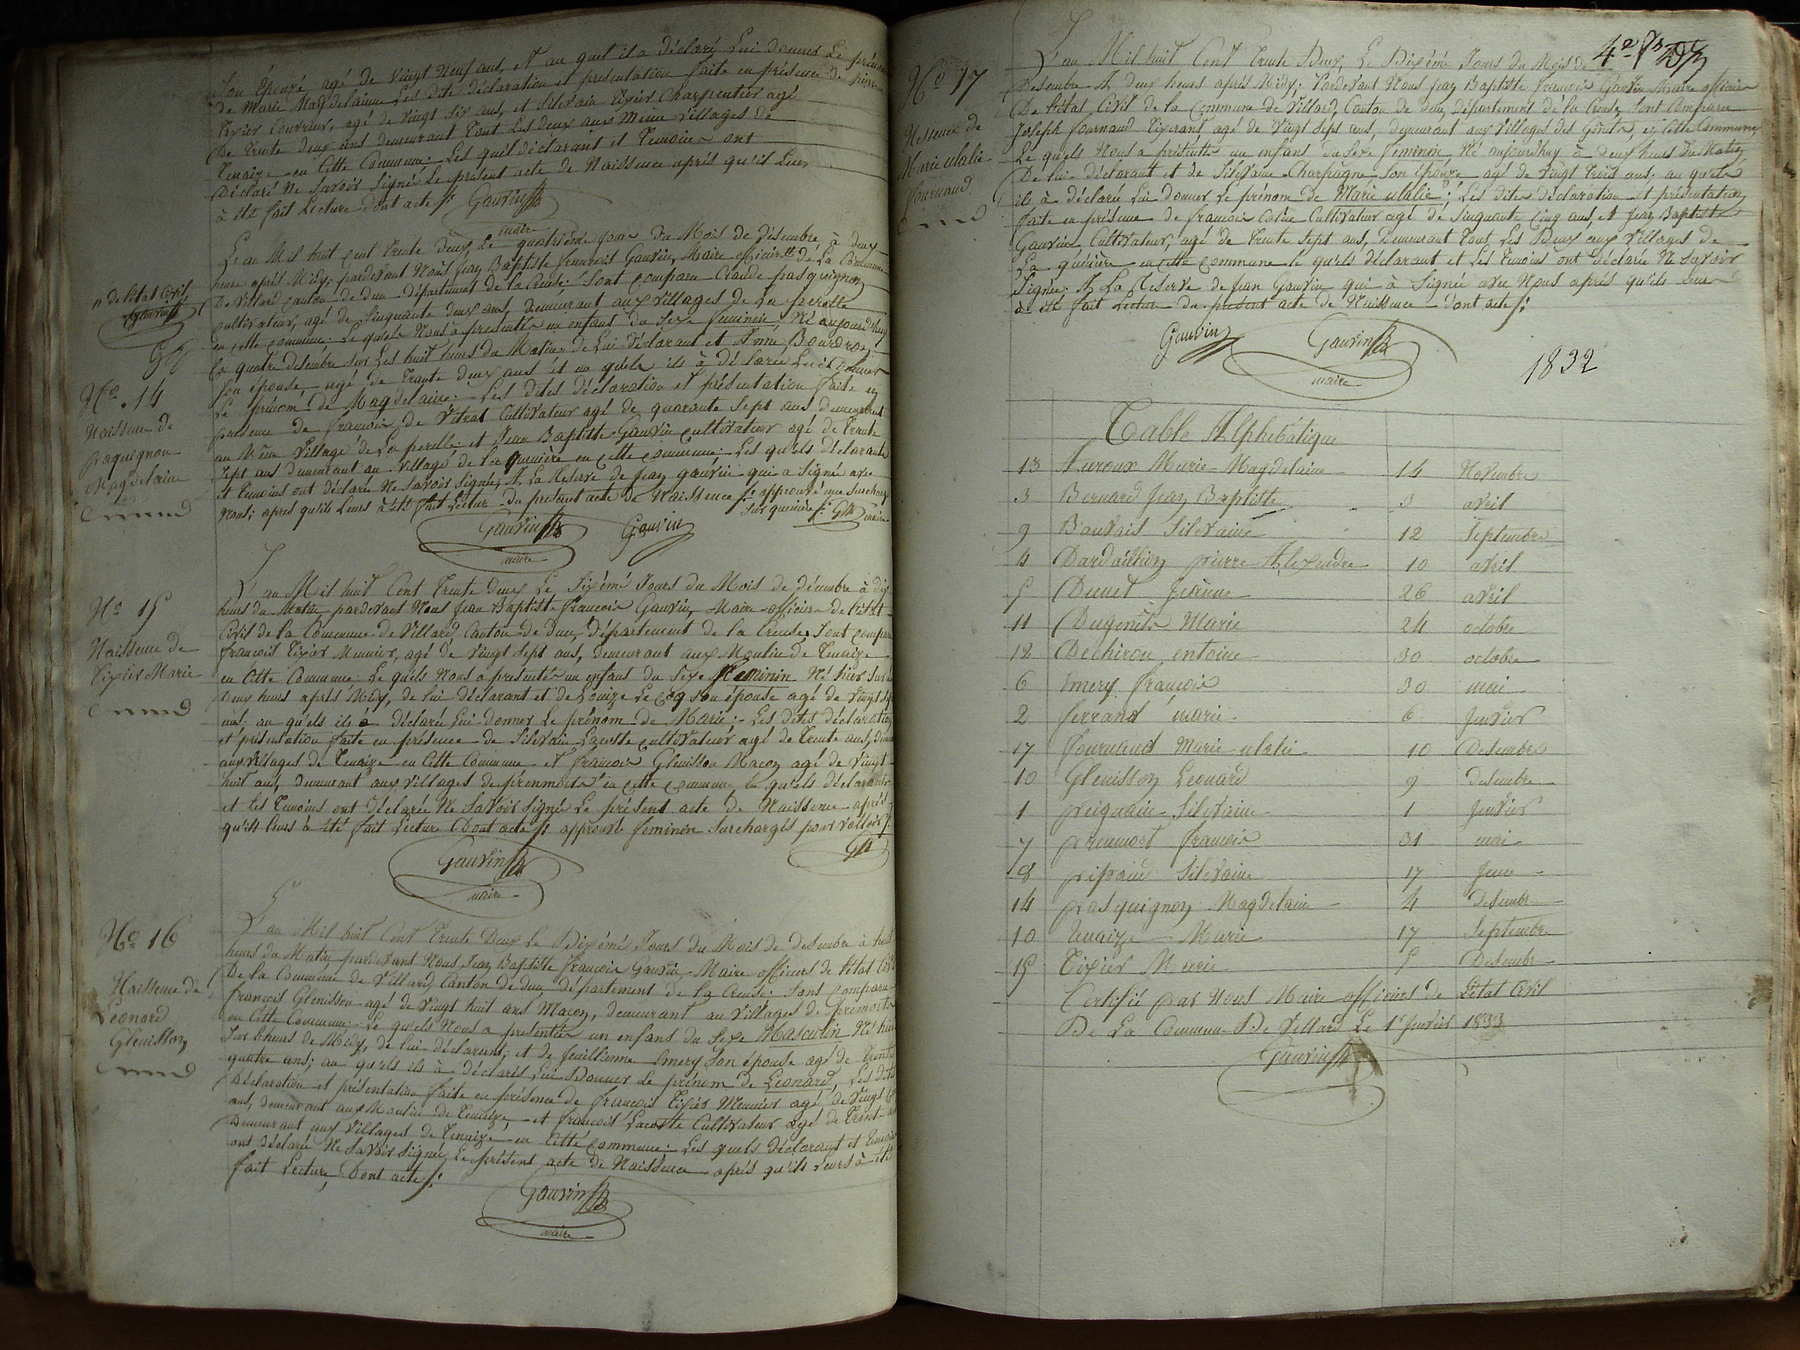 Son Épouse, agé de vingt neuf ans, et au quel il a déclaré Lui donner Le prénom
de Marie Magdelainne Les dite déclaration et presentation faite en présence de pierre
Tixier Couvreur, agé de vingt six ans, et Silvain Tixier Charpentier agé
De trente deux ans demeurant tout Les deux aux meme villages de
Tenaize en Cette Commune: Les quel déclarant et Temoins ont
Déclaré Ne Savoir Signé Le présent acte de Naissence aprés qu'il Leur
à été fait Lecture dont acte
Gauvin
maire
L'an Mil huit cent trente deux, Le quatrième jour du Mois de désembre, à deux
heure aprés Midy; pardevant Nous Jean Baptiste francois Gauvin, Maire officier de La Commune
De villard canton de dun département de la Creuse: Sont comparu Claude pasquignon
cultivateur, agé de Sinquante deux ans, demeurant aux villages de La perelle
en cette commune: Le quels Nous a presentés un enfant du Sexe feminin Né aujourd'huy
Le quatre désembre Sur Les huit heurs du Matin de Lui Déclarant et
Son épouse agé de trante deux ans et au quels ils à déclarée Lui Donner
Le prénom de Magdelaine: Les dites déclaration et présentation faite en
présence de francois de vitrat Cultivateur agé de quarante Sept ans demeurant
au Même village de La perelle et Jean Baptiste Gauvin cultivateur agé de trante
Sept ans demeurant au village de La queuière en cette commune: Les quels déclarant
et temoins ont déclaré Ne Savoir Signé; A La Reserve de Jean gauvin qui a Signé avec
Nous; apres qu'ils Leurs à été fait Lecture du present acte de Naissence approuvé une Surcharge
Sur queuière
Gauvin
maire
Gauvin
n de l'état Civil
Gauvin
No. 14
Naissence de
paquignon
Magdelaine
No 15
Naissence de
Tixier Marie
L'an Mil huit Cent Trente deux Le Sixiémé Jours du Mois de décembre à dix
heurs du Matin pardevant Nous Jean Baptiste francois Gauvin Maire officier de l'état
Civil de la Commune de Villard, Canton de dun, département de la Creuse, Sont comparu
francois Tixier Meunier, agé de vingt Sept ans, demeurant aux Moulin de Tenaize
en Cette Commune: Le quels Nous a presentés un enfant du Sexe Feminin Né hier Sur les
deux heurs aprés Midy, de lui déclarant et de Louize Le Coq Son épouse agé de vingt
ans; au quels ils à déclarée Lui donner Le prénom de Marie; Les dites déclaration
et présentation faite en présence de Silvain Lacoste cultivateur agé de trente ans,
aux villages de Tenaize en Cette Commune et francois Glenisson Macon agé de vingt
huit ans, demeurant aux villages de prenmorts en cette commune Le quels déclarant
et Les temoins ont déclarée Ne Savoir Signé Le présent acte de Naissence aprés
qu'ils leurs à été fait Lecture Dont acte approuvé feminin Surchargés pour valloir
Gauvin
maire
No 16
Naissence de
Léonard
Glenisson
L'an Mil huit Cent Trente Deux Le Dixiémé Jours du Mois de désembre à huit
heurs du Matin pardevans Nous Jean Baptiste francois Gauvin Maire officiers de l'état Civil
De la Commune de Villard, Canton de dun département de la Creuse. Sont comparu
francois Glenisson agé de vingt huit ans Macon, demeurant au villages de premorts
en Cette Commune: Le quels Nous a presentés un enfans du Sexe Masculin Né hier
Sur heurs de Midy, de lui déclarant; et de feuillienne Emery Son épouse agé de trente
quatre ans; au quels ils à déclarée Lui Donner Le prénom de Léonard, Les dites
Déclaration et présentation faite en présence de francois Tixier Meunier agé de vingt
ans, demeurant aux Moulin de Tenaize, et francois Lacoste Cultivateur agé de trente
Demeurant aux villages de Tenaize en Cette commune: Les quels déclarant et temoins
ont déclarée Ne Savoir Signé Le présent acte de Naissence aprés qu'ils Leurs à été
fait Lecture Dont acte
Gauvin
maire
No 17
Naissence de
Marie ulalie
fournaud
L'an Mil huit Cent trente Deux, Le Dixiémé Jours du Mois de
Desembre A deux heurs aprés Midy; Pardevant Nous Jean Baptiste francois Gauvin Maire officier
De l'état Civil de la Commune de Villard, Canton de dun, département de la Creuse, Sont Comparu
Joseph fournaud Tixerant agé de vingt Sept ans, demeurant aux villages des en Cette Commune
Le quels Nous a présentés un enfant du Sexe feminin Né aujourd'huy à deux heurs du Matin
De lui déclarant et de Silvaine Charpagne Son épouze agé de vingt huit ans; au quels
ils à déclaré Lui donner Le prénom de Marie ulalie; Les dites déclaration et présentation
faite en présence de francois Colin Cultivateur agé de Sinquante Cinq ans, et Jean Baptiste
Gauvin Cultivateur, agé de trente Sept ans, Demeurant tout Les Deux aux villages de
La queuière en cette commune le quels déclarant et Les temoins ont déclarée Ne Savoir
Signé: A La Reserve de Jean Gauvin qui à Signée avec Nous aprés qu'ils Leur
à été fait Lecture du present acte de Naissence dont acte
Gauvin
Gauvin
maire
1832
Table Alphébétique
13 Auroux Marie Magdelaine 14 Novembre
3 Bernard Jean Baptiste 3 avril
9 Bauvais Silvaine 12 Septembre
4 Dardaillon pierre Alexandre 10 avril
5 Dunet Jérôme 26 avril
11 Dugenêt Marie 24 octobre
12 Dechirou entoine 30 octobre
6 Emery francois 30 mai
2 ferrand marie 6 Janvier
17 fournaud Marie ulalie 10 Desembre
10 Glenisson Léonard 9 desembre
1 peignaie Silvaine 1 Janvier
7 preumort francois 31 mai
8 pipaud Silvaine 17 Juin
14 pasquignon Magdelaine 4 Desembre
10 Tenaize Marie 17 Septembre
15 Tixier Marie 5 Desembre
Certifié par Nous Maire officiers de L'état Civil
De La Commune De Villard Le 1er Janvier 1833
Gauvin